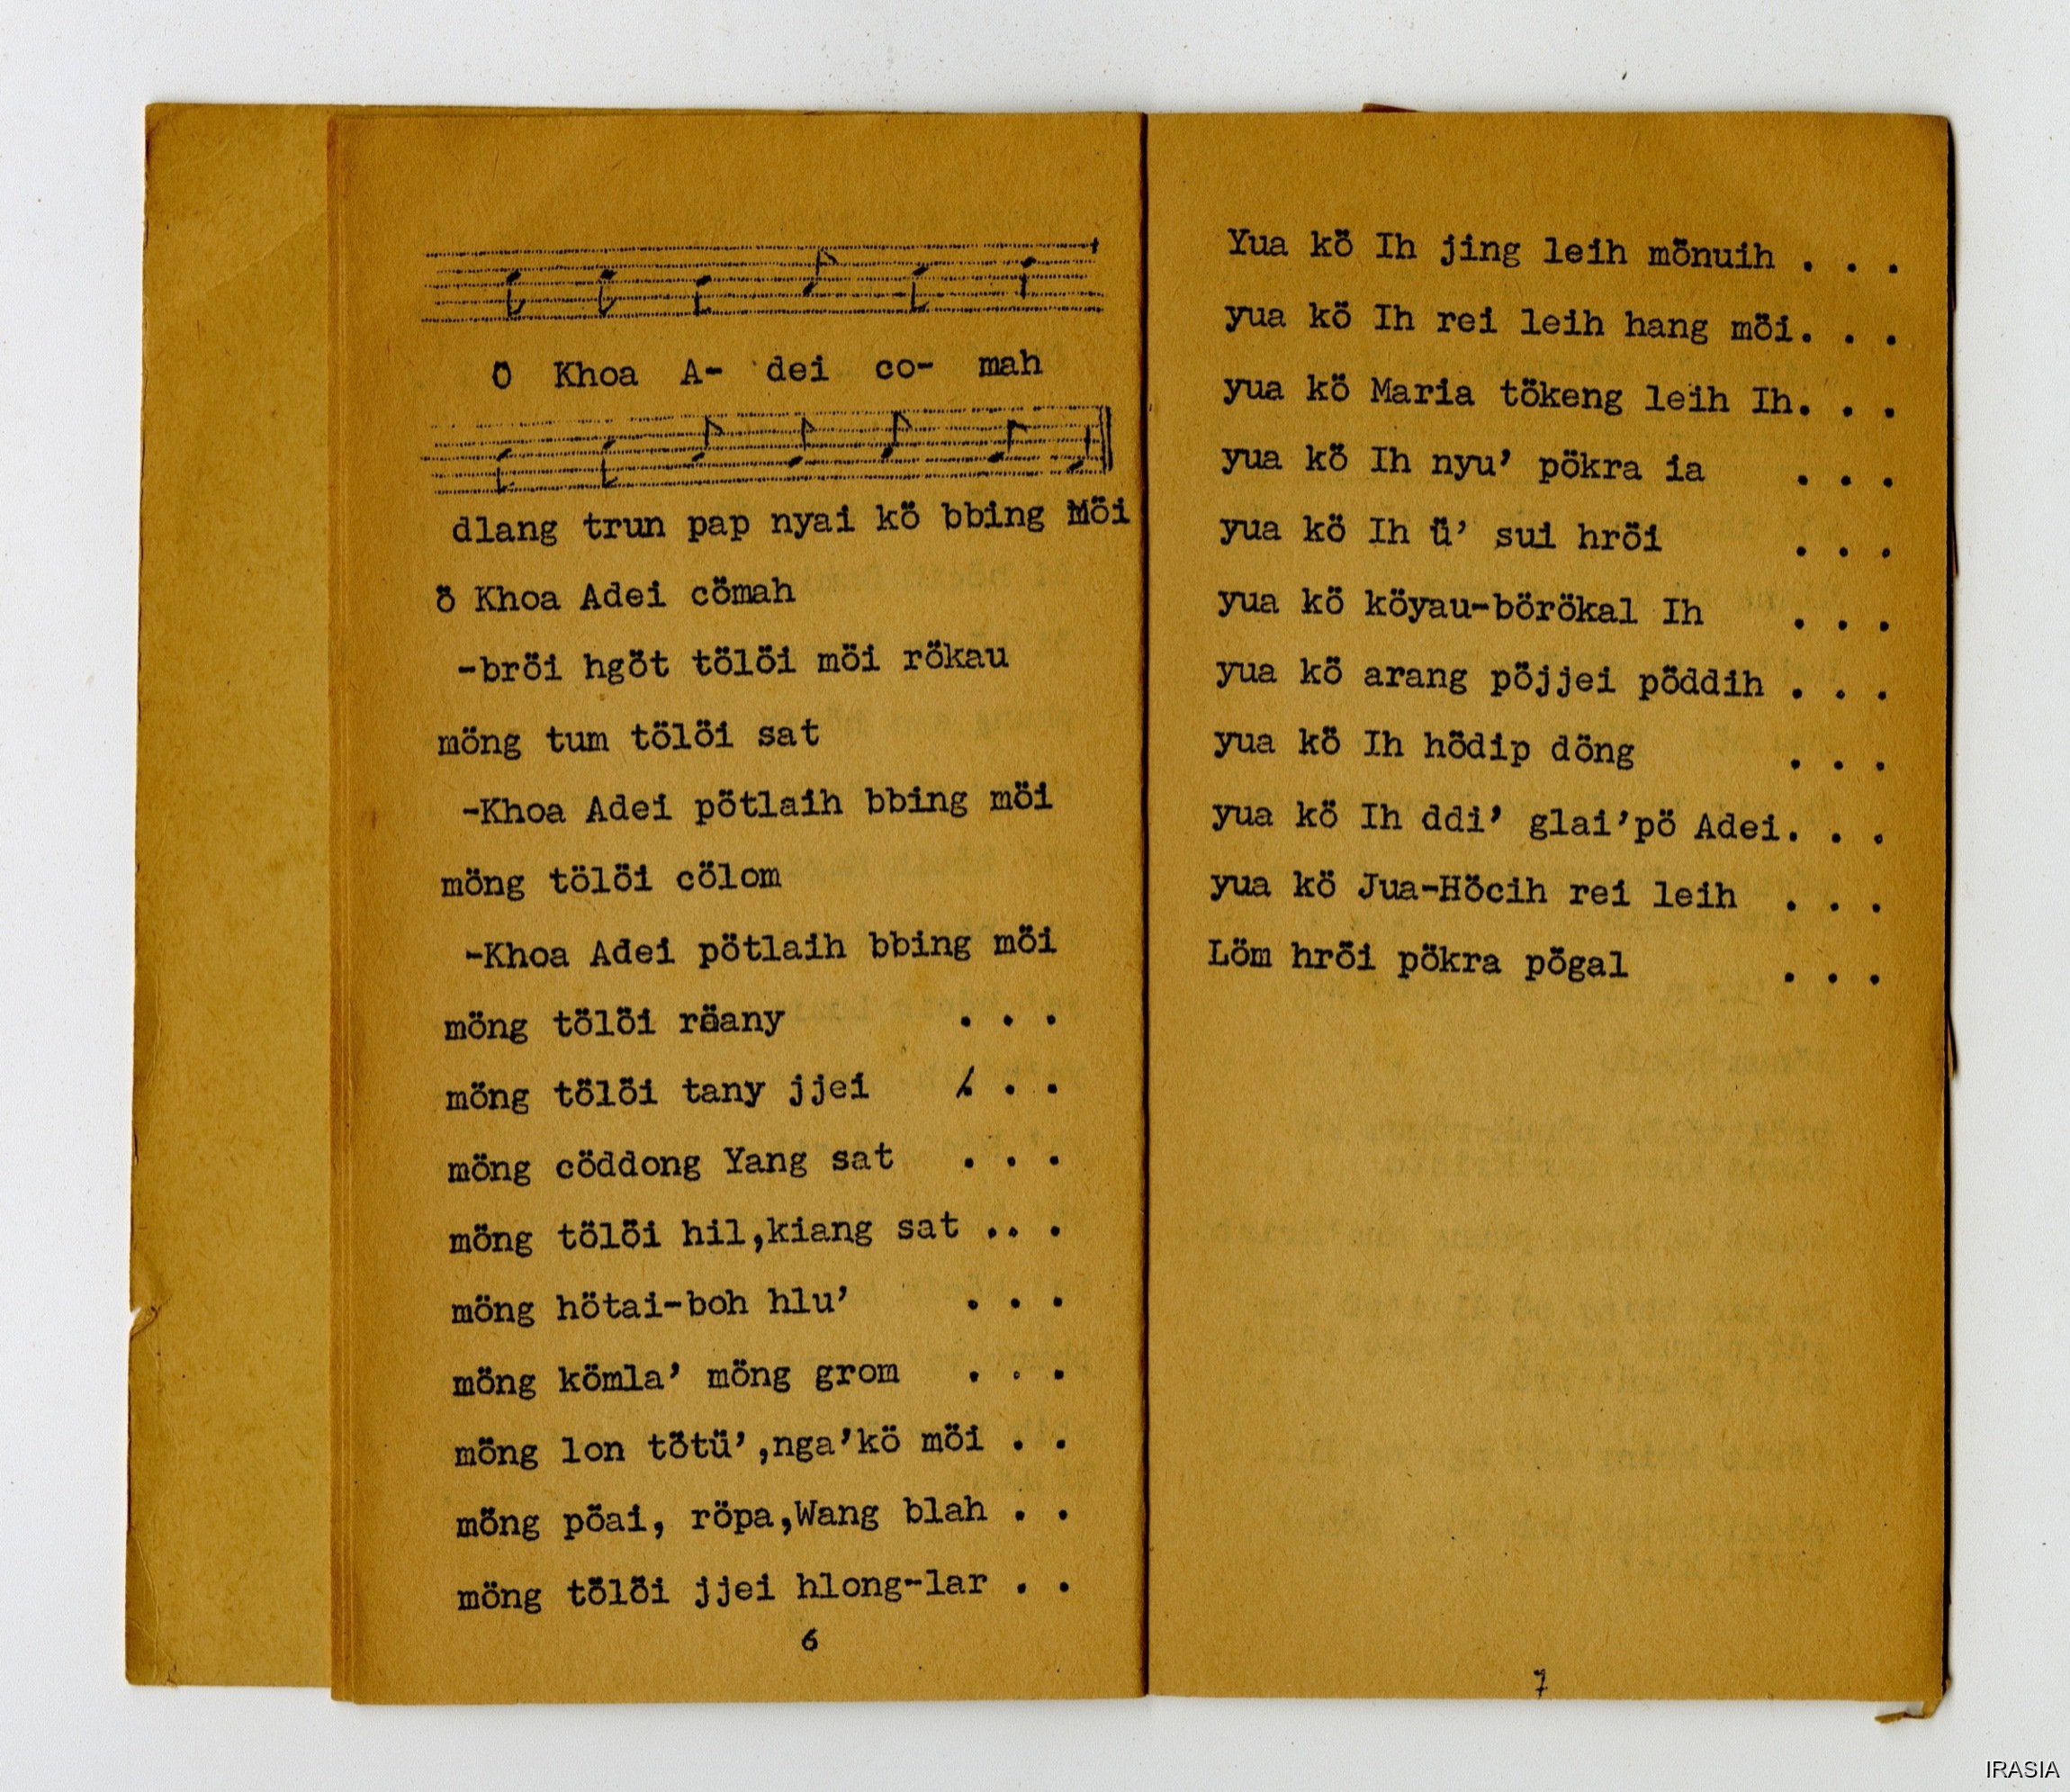 Ö Khoa A- dei co- mah
dlang trun pap nyai kö bbing Möi
ö Khoa Adei cömah
-bröi hgöt tölöi möi rökau
möng tum tölöi sat
-Khoa Adei pötlaih bbing möi
möng tölöi cölom
-Khoa Adei pötlaih bbing möi
möng tölöi räany . . .
möng tölöi tany jjei . . .
möng cöddong Yang sat . . .
möng tölöi hil,kiang sat .. .
möng hötai-boh hlu' . . .
möng kömla' möng grom . . .
möng lon tötü',nga'kö möi . .
möng pöai, röpa,Wang blah . .
möng tölöi jjei hlong-lar . .
6
Yua kö Ih jing leih mönuih . . .
yua kö Ih rei leih hang möi. . .
yua kö Maria tökeng leih Ih. . .
yua kö Ih nyu' pökra ia . . .
yua kö Ih ü' sui hröi . . .
yua kö köyau-börökal Ih . . .
yua kö arang pöjjei pöddih . . .
yua kö Ih hödip döng . . .
yua kö Ih ddi' glai'pö Adei. . .
yua kö Jua-Höcih rei leih . . .
Löm hröi pökra pögal . . .
7
IRASIA